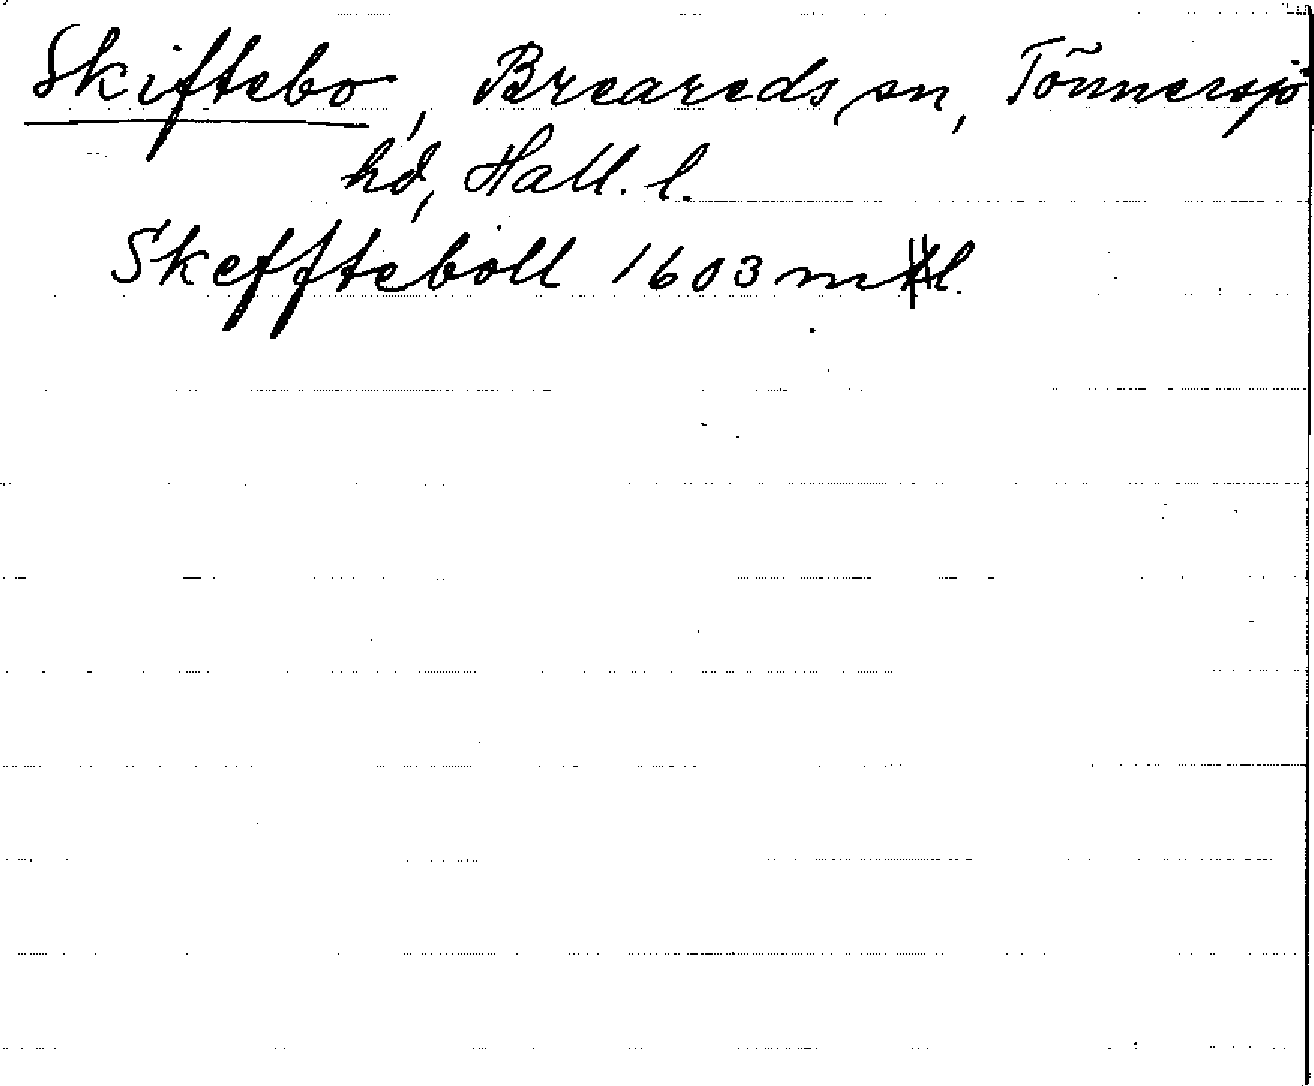 Skiftebo, Breareds sn, Tönnersjö
hd, Hall. l.
Skeffteboll 1603 mtl.